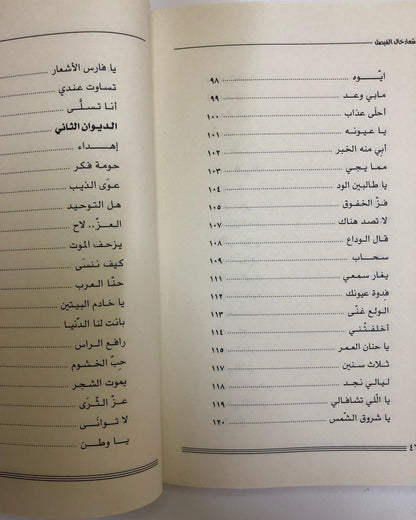 أشعار خالد الفيصل
ايّوه ٩٨
مابي وعد ٩٩
أحلى عذاب ١٠٠
يا عيونه ١٠١
أبي منه الخبر ١٠٢
مما يجي ١٠٣
يا طالبين الود ١٠٤
فزّ الخفوق ١٠٥
لا تصد هناك ١٠٧
قال الوداع ١٠٨
سحاب ١٠٩
يغار سمعي ١١١
فدوة عيونك ١١٢
الولع غنّى ١١٣
أخلفتْني ١١٤
يا حنان العمر ١١٥
ثلاث سنين ١١٧
ليالي نجد ١١٨
يا الّلي تشافالي ١١٩
يا شروق الشمس ١٢٠
يا فارس الأشعار
تساوت عندي
أنا تسلَّى
الديوان الثاني
إهداء
حومة فكر
عوّى الذيب
هل التوحيد
العزّ.. لاح
يزحف الموت
كيف ننسَى
حنّا العرب
يا خادم البيتين
بانت لنا الدّنيا
رافع الراس
حبّ الخشوم
يموت الشجر
عزّ الثّرى
لا توانَى
يا وطن